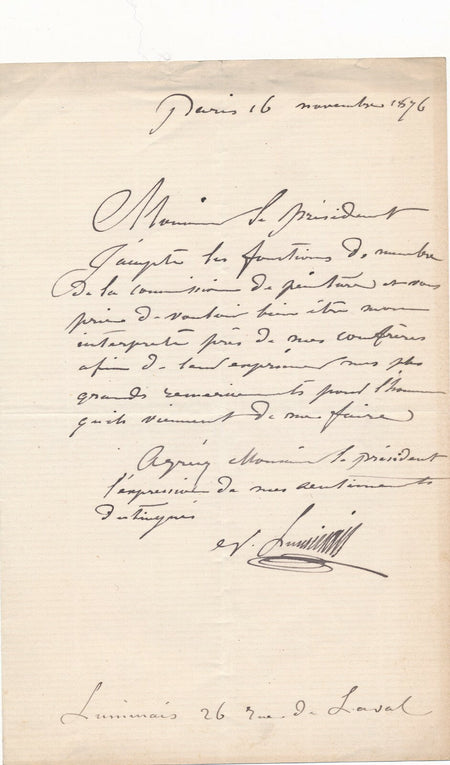 Paris 16 novembre 1876
Monsieur le président
J'accepte les fonctions de membre
de la commission de peinture et vous
prie de vouloir bien être mon
interprete près de mes confrères
afin de leur exprimer mes plus
grands remerciements pour l'honneur
qu'ils viennent de me faire
Agréez Monsieur le président
l'expression de mes sentiments
distingués
ev. Luminais
Luminais 26 rue de Laval